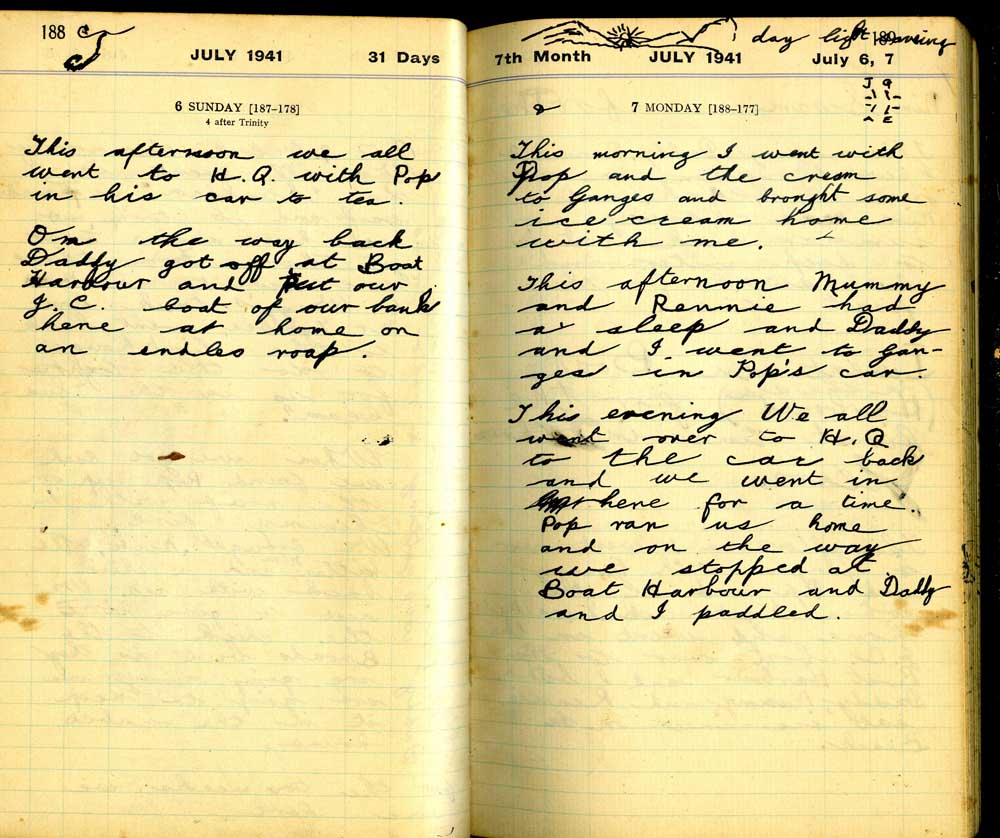 188
JULY 1941
31 Days
6 SUNDAY [187-178]
4 after Trinity
This afternoon we all
went to H.Q. with Pop
in his car to tea.
On the way back
Daddy got off at Boat
Harbour and put our
J.C. boat of our bank
here at home on
an endles roap.
day light saveing
189
7th Month
JULY 1941
July 6, 7
7 MONDAY [188-177]
This morning I went with
Pop and the cream
to Ganges and brought some
ice cream home
with me.
This afternoon Mummy
and Rennie had
a sleep and Daddy
and I went to Gan-
ges in Pop's car.
This evening We all
went over to H.Q
to the car back
and we went in
here for a time.
Pop ran us home
and on the way
we stopped at
Boat Harbour and Daddy
and I paddled.